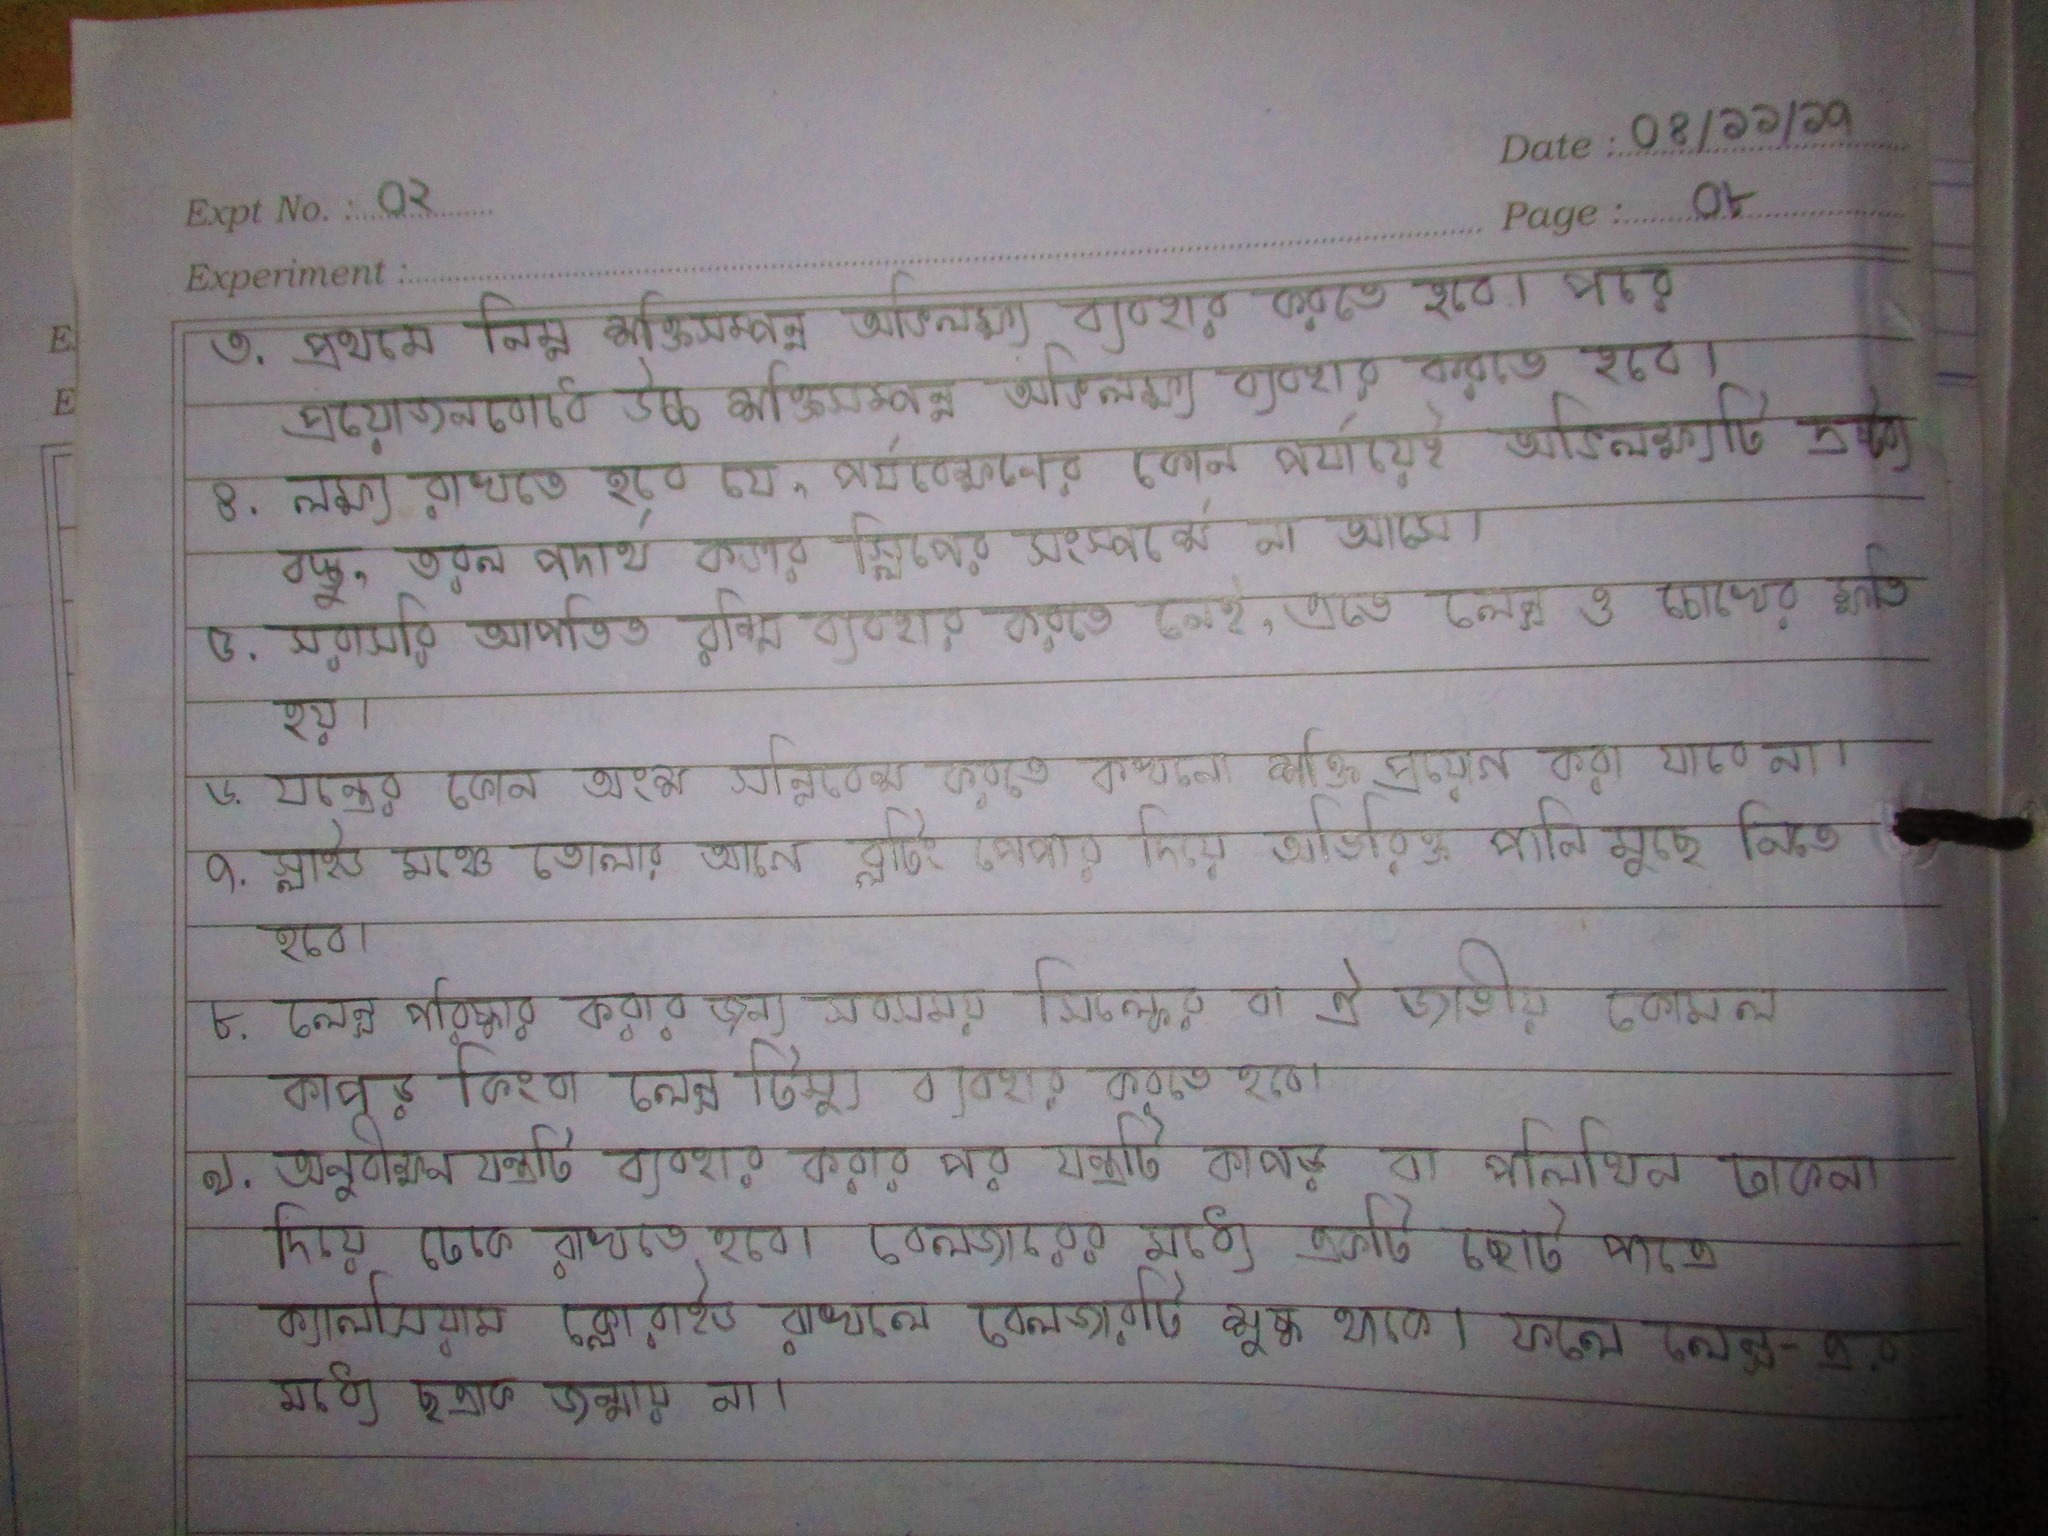 Date : ০৪/১১/১৭
Expt No. : ০২
Page : ০৮
Experiment :
৩. প্রথমে নিম্ন শক্তিসম্পন্ন অভিলক্ষ্য ব্যবহার করতে হবে। পরে
প্রয়োজনবোধে উচ্চ শক্তিসম্পন্ন অভিলক্ষ্য ব্যবহার করতে হবে।
৪. লক্ষ্য রাখতে হবে যে, পর্যবেক্ষনের কোন পর্যায়েই অভিলক্ষ্যটি দ্রষ্টব্য
বস্তু, তরল পদার্থ কভার স্লিপের সংস্পর্শে না আসে।
৫. সরাসরি আপতিত রশ্মি ব্যবহার করতে নেই, এতে লেন্স ও চোখের ক্ষতি
হয়।
৬. যন্ত্রের কোন অংশ সন্নিবেশ করতে কখনো শক্তি প্রয়োগ করা যাবে না।
৭. স্লাইড মঞ্চে তোলার আগে ব্লটিং পেপার দিয়ে অতিরিক্ত পানি মুছে নিতে
হবে।
৮. লেন্স পরিষ্কার করার জন্য সবসময় সিল্কের বা ঐ জাতীয় কোমল
কাপড় কিংবা লেন্স টিস্যু ব্যবহার করতে হবে।
৯. অনুবীক্ষন যন্ত্রটি ব্যবহার করার পর যন্ত্রটি কাপড় বা পলিথিন ঢাকনা
দিয়ে ঢেকে রাখতে হবে। বেলজারের মধ্যে একটি ছোট পাত্রে
ক্যালসিয়াম ক্লোরাইড রাখলে বেলজারটি শুষ্ক থাকে। ফলে লেন্স-এর
মধ্যে ছত্রাক জন্মায় না।